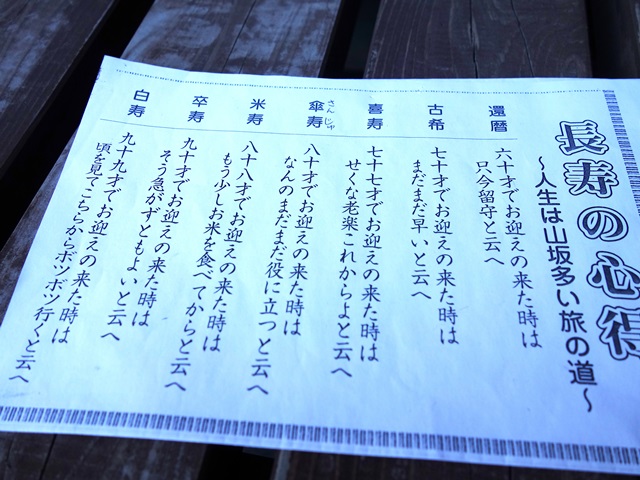 長寿の心得
～人生は山坂多い旅の道～
還暦
六十才でお迎えの来た時は
只今留守と云へ
古希
七十才でお迎えの来た時は
まだまだ早いと云へ
喜寿
七十七才でお迎えの来た時は
せくな老楽これからよと云へ
傘寿
さんじゅ
八十才でお迎えの来た時は
なんのまだまだ役に立つと云へ
米寿
八十八才でお迎えの来た時は
もう少しお米を食べてからと云へ
卒寿
九十才でお迎えの来た時は
そう急がずともよいと云へ
白寿
九十九才でお迎えの来た時は
頃を見てこちらからボツボツ行くと云へ